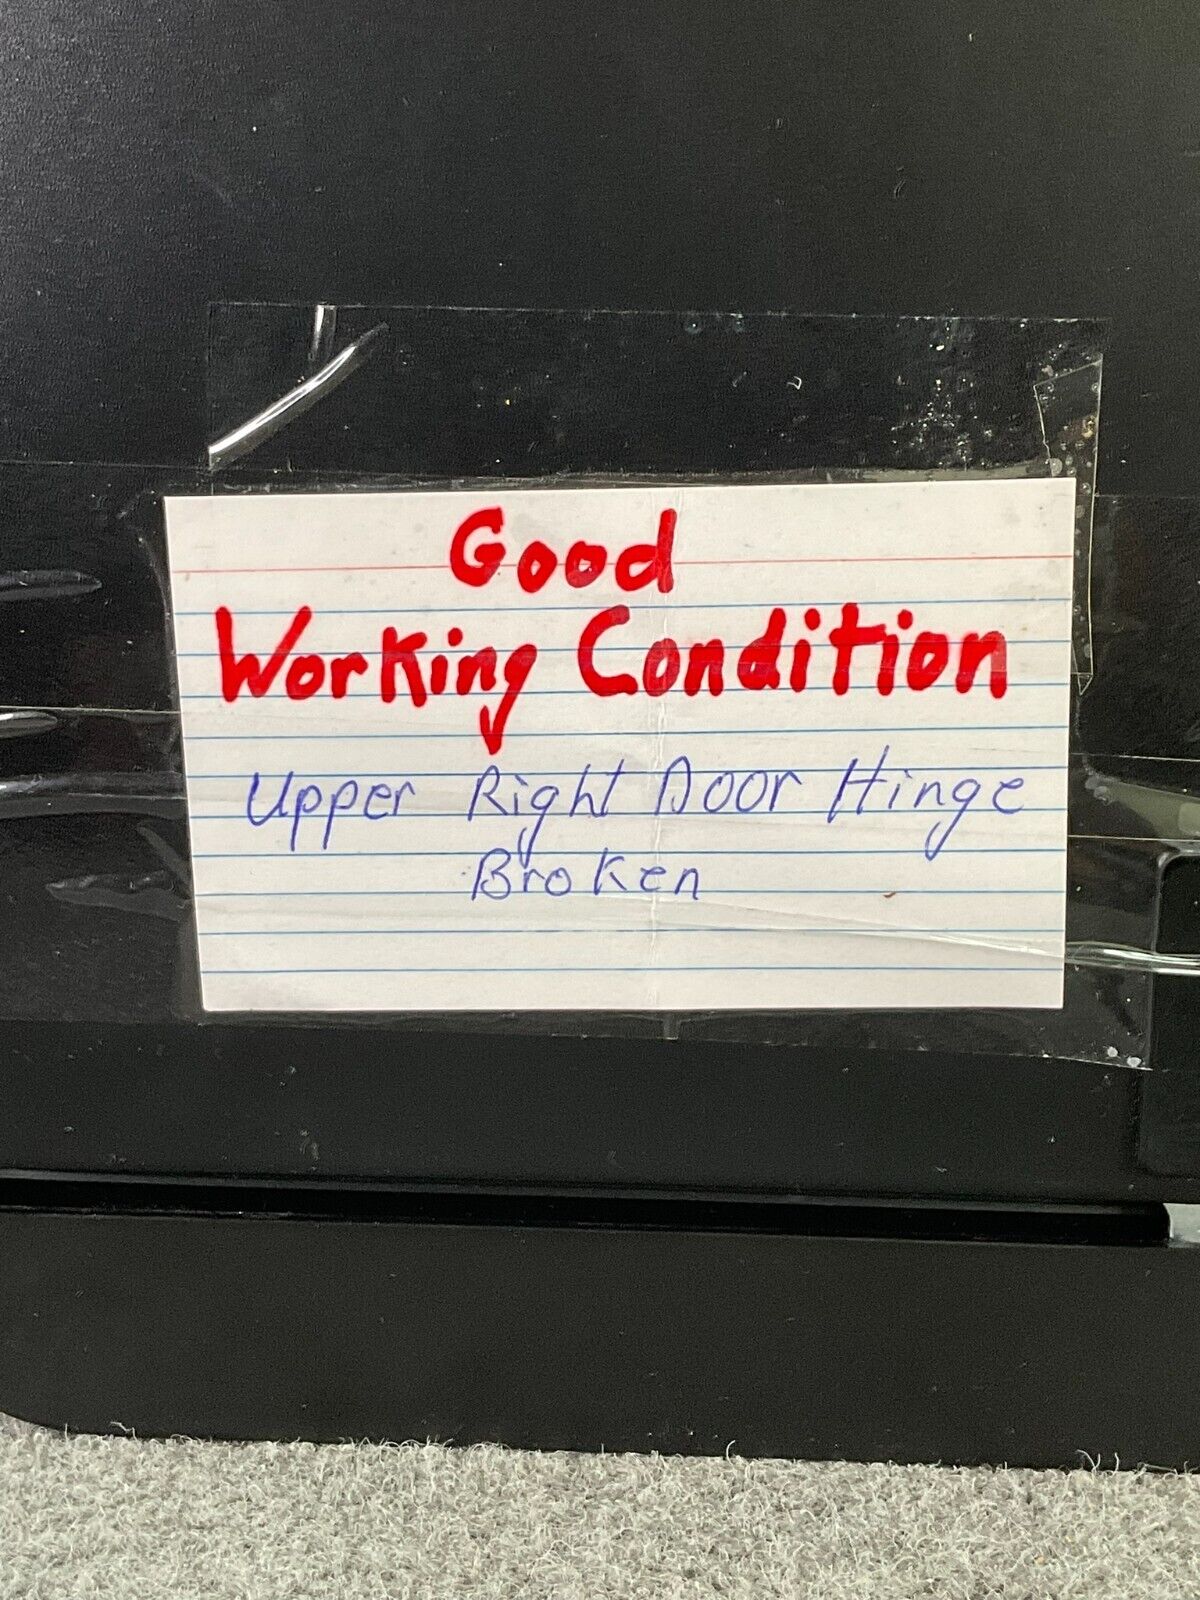 Good
Working Condition
Upper Right Door Hinge
Broken